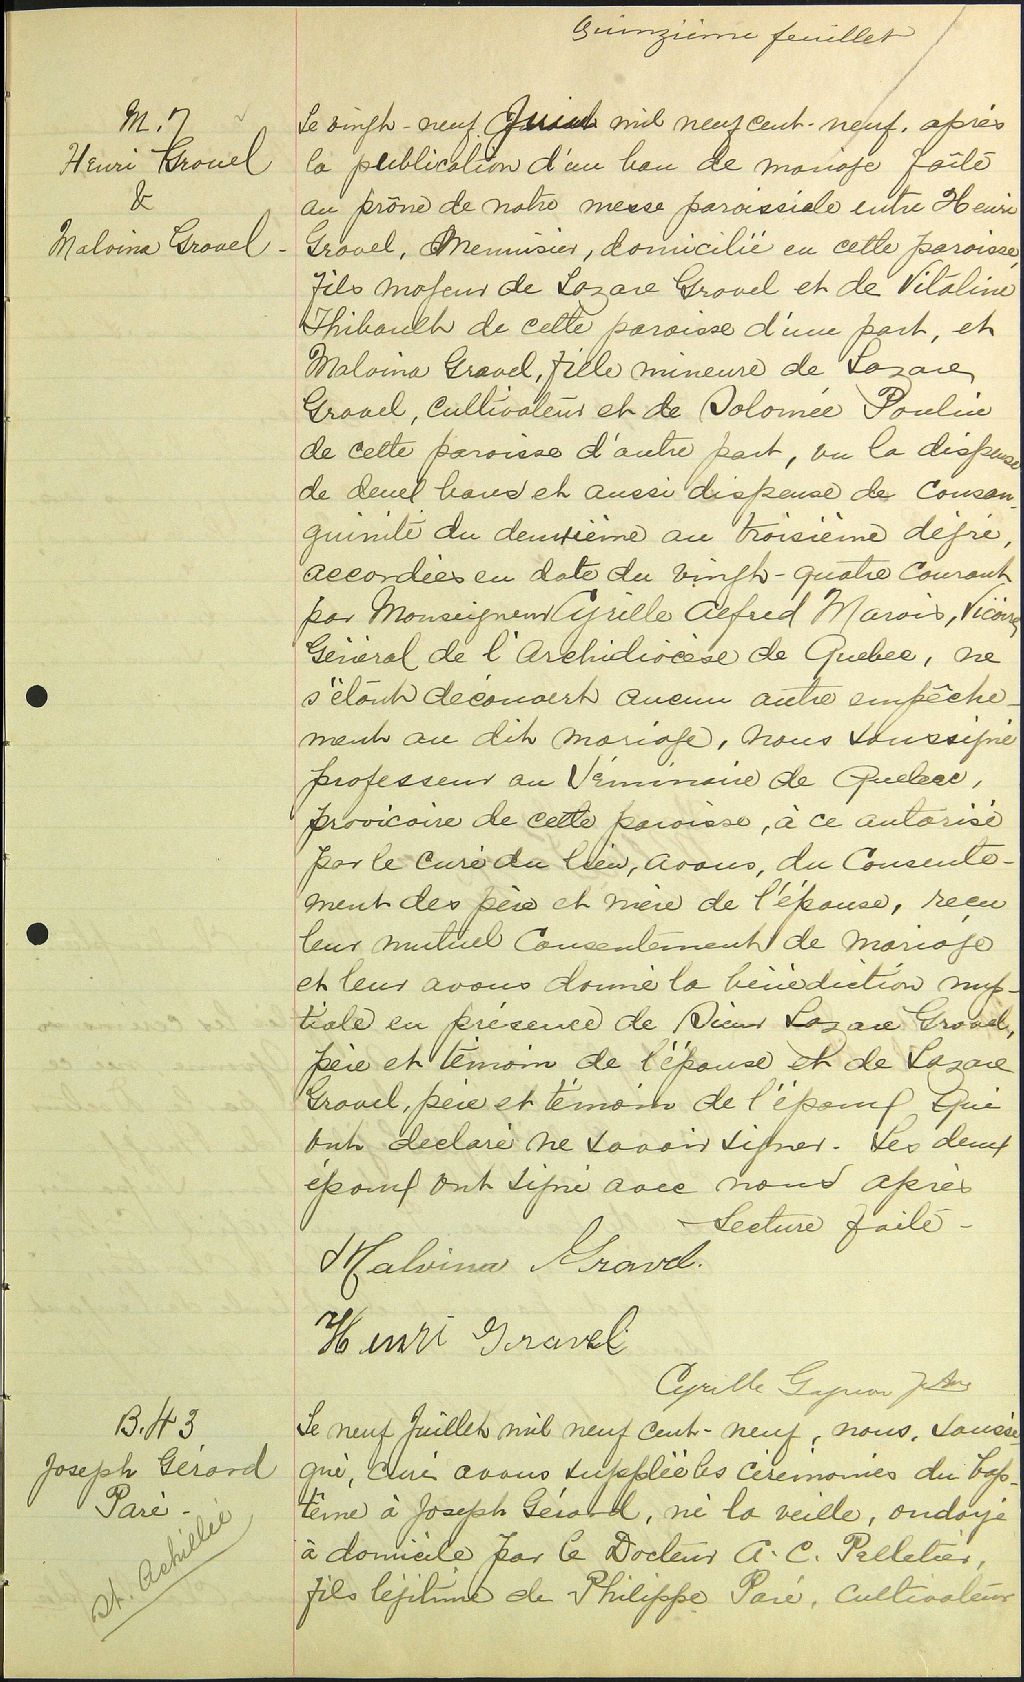 Quinzième feuillet
M. 7
Henri Gravel
&
Malvina Gravel -
Le vingt-neuf Juin mil neuf cent-neuf, après
la publication d'un ban de mariage faite
au prône de notre messe paroissiale entre Henri
Gravel, Menuisier, domicilié en cette paroisse,
fils majeur de Lazare Gravel et de Vitaline
Thibault de cette paroisse d'une part, et
Malvina Gravel, fille mineure de Lazare
Gravel, cultivateur et de Solomée Poulin
de cette paroisse d'autre part, vu la dispense
de deux bans et aussi dispense de consan-
guinité du deuxième au troisième degré,
accordées en date du vingt-quatre courant
par Monseigneur Cyrille Alfred Marois, Vicaire
Général de l'Archidiocèse de Quebec, ne
s'étant découvert aucun autre empêche-
ment au dit mariage, nous soussigné
professeur au Séminaire de Quebec,
provicaire de cette paroisse, à ce autorisé
par le curé du lieu, avons, du consente-
ment des père et mère de l'épouse, reçu
leur mutuel consentement de mariage
et leur avons donné la bénédiction nup-
tiale en présence de Sieur Lazare Gravel,
père et témoin de l'épouse et de Lazare
Gravel, père et témoin de l'époux qui
ont declaré ne savoir signer. Les deux
époux ont signé avec nous après
Lecture faite -
Malvina Gravel.
Henri Gravel
Cyrille Gagnon Ptre
B. 43
Joseph Gérard
Paré -
St. Achillée
Le neuf Juillet mil neuf cent-neuf, nous, soussi-
gné, curé avons suppléé les cérémonies du bap-
tême à Joseph Gérard, né la veille, ondoyé
à domicile par le Docteur A. C. Pelletier,
fils légitime de Philippe Paré, cultivateur